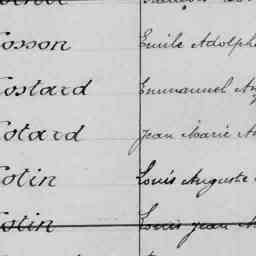 osson Emile Adolphe
ostard Emmanuel Au
otard Jean Marie A
otin Louis Auguste
otin Louis Jean M